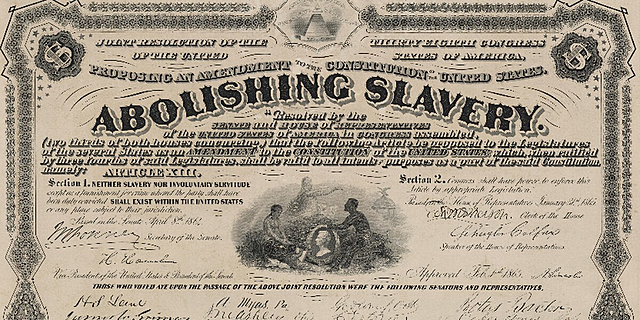 JOINT RESOLUTION OF THE THIRTY EIGHTH CONGRESS
OF THE UNITED STATES OF AMERICA,
PROPOSING AN AMENDMENT TO THE CONSTITUTION OF THE UNITED STATES.
ABOLISHING SLAVERY.
"Resolved by the
SENATE and HOUSE of REPRESENTATIVES
of the UNITED STATES of AMERICA in CONGRESS assembled,
(two thirds of both houses concurring,) that the following article be proposed to the Legislatures
of the several States as an AMENDMENT to the CONSTITUTION of the UNITED STATES, which, when ratified
by three fourths of said Legislatures, shall be valid to all intents & purposes as a part of the said Constitution,
namely: ARTICLE XIII.
Section 1. NEITHER SLAVERY NOR INVOLUNTARY SERVITUDE
except as a punishment for crime whereof the party shall have
been duly convicted SHALL EXIST WITHIN THE UNITED STATES
or any place subject to their jurisdiction.
Passed in the Senate April 8th 1864
Secretary of the Senate.
H. Hamlin
Vice President of the United States & President of the Senate
Section 2. Congress shall have power to enforce this
Article by appropriate Legislation.
House of Representatives January 31st 1865
Clerk of the House
Schuyler Colfax
Speaker of the House of Representatives.
Approved Feb. 1st 1865. A. Lincoln
THOSE WHO VOTED AYE UPON THE PASSAGE OF THE ABOVE JOINT RESOLUTION WERE THE FOLLOWING SENATORS AND REPRESENTATIVES,